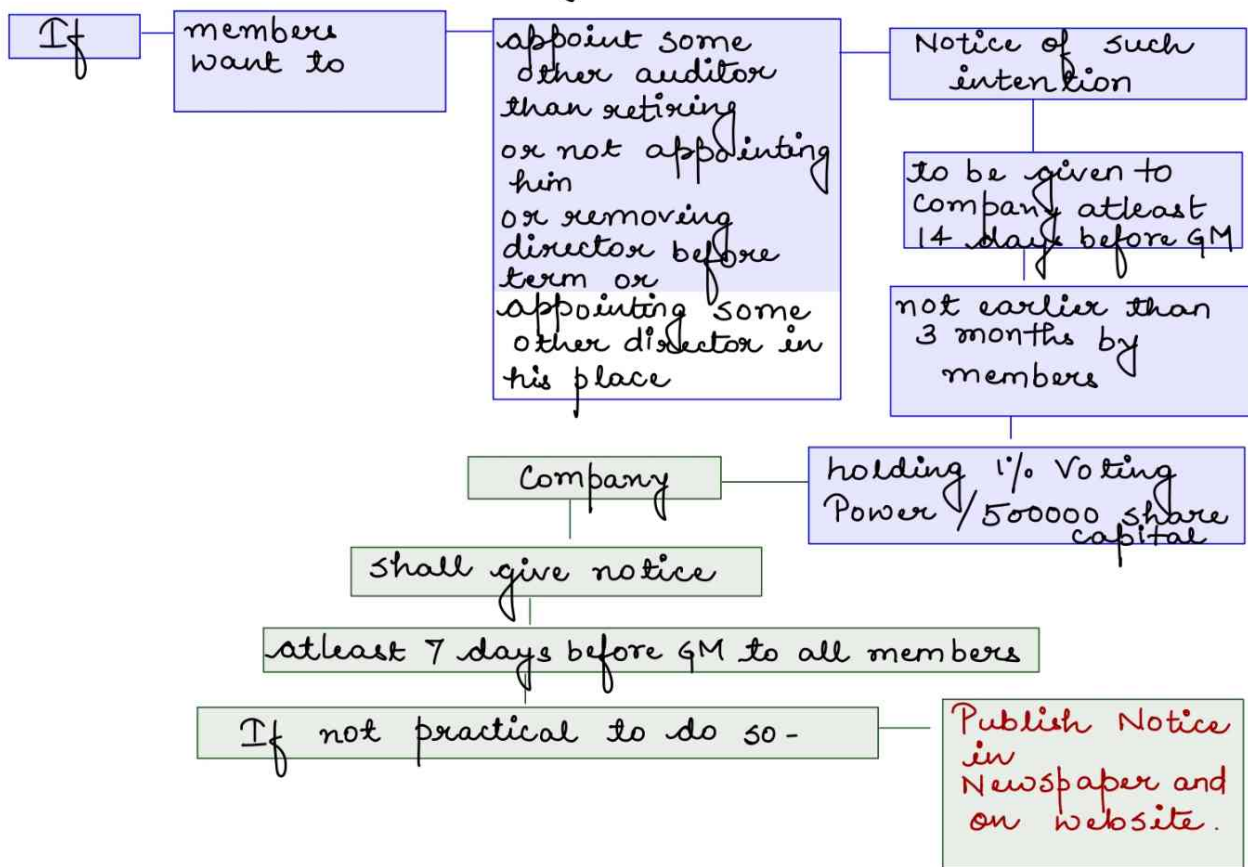 If
members
want to
appoint some
other auditor
than retiring
or not appointing
him
or removing
director before
term or
appointing some
other director in
his place
Notice of such
intention
to be given to
company atleast
14 days before GM
not earlier than
3 months by
members
holding 1% Voting
Power /500000 share
capital
Company
shall give notice
atleast 7 days before GM to all members
If not practical to do so-
Publish Notice
in
Newspaper and
on website.